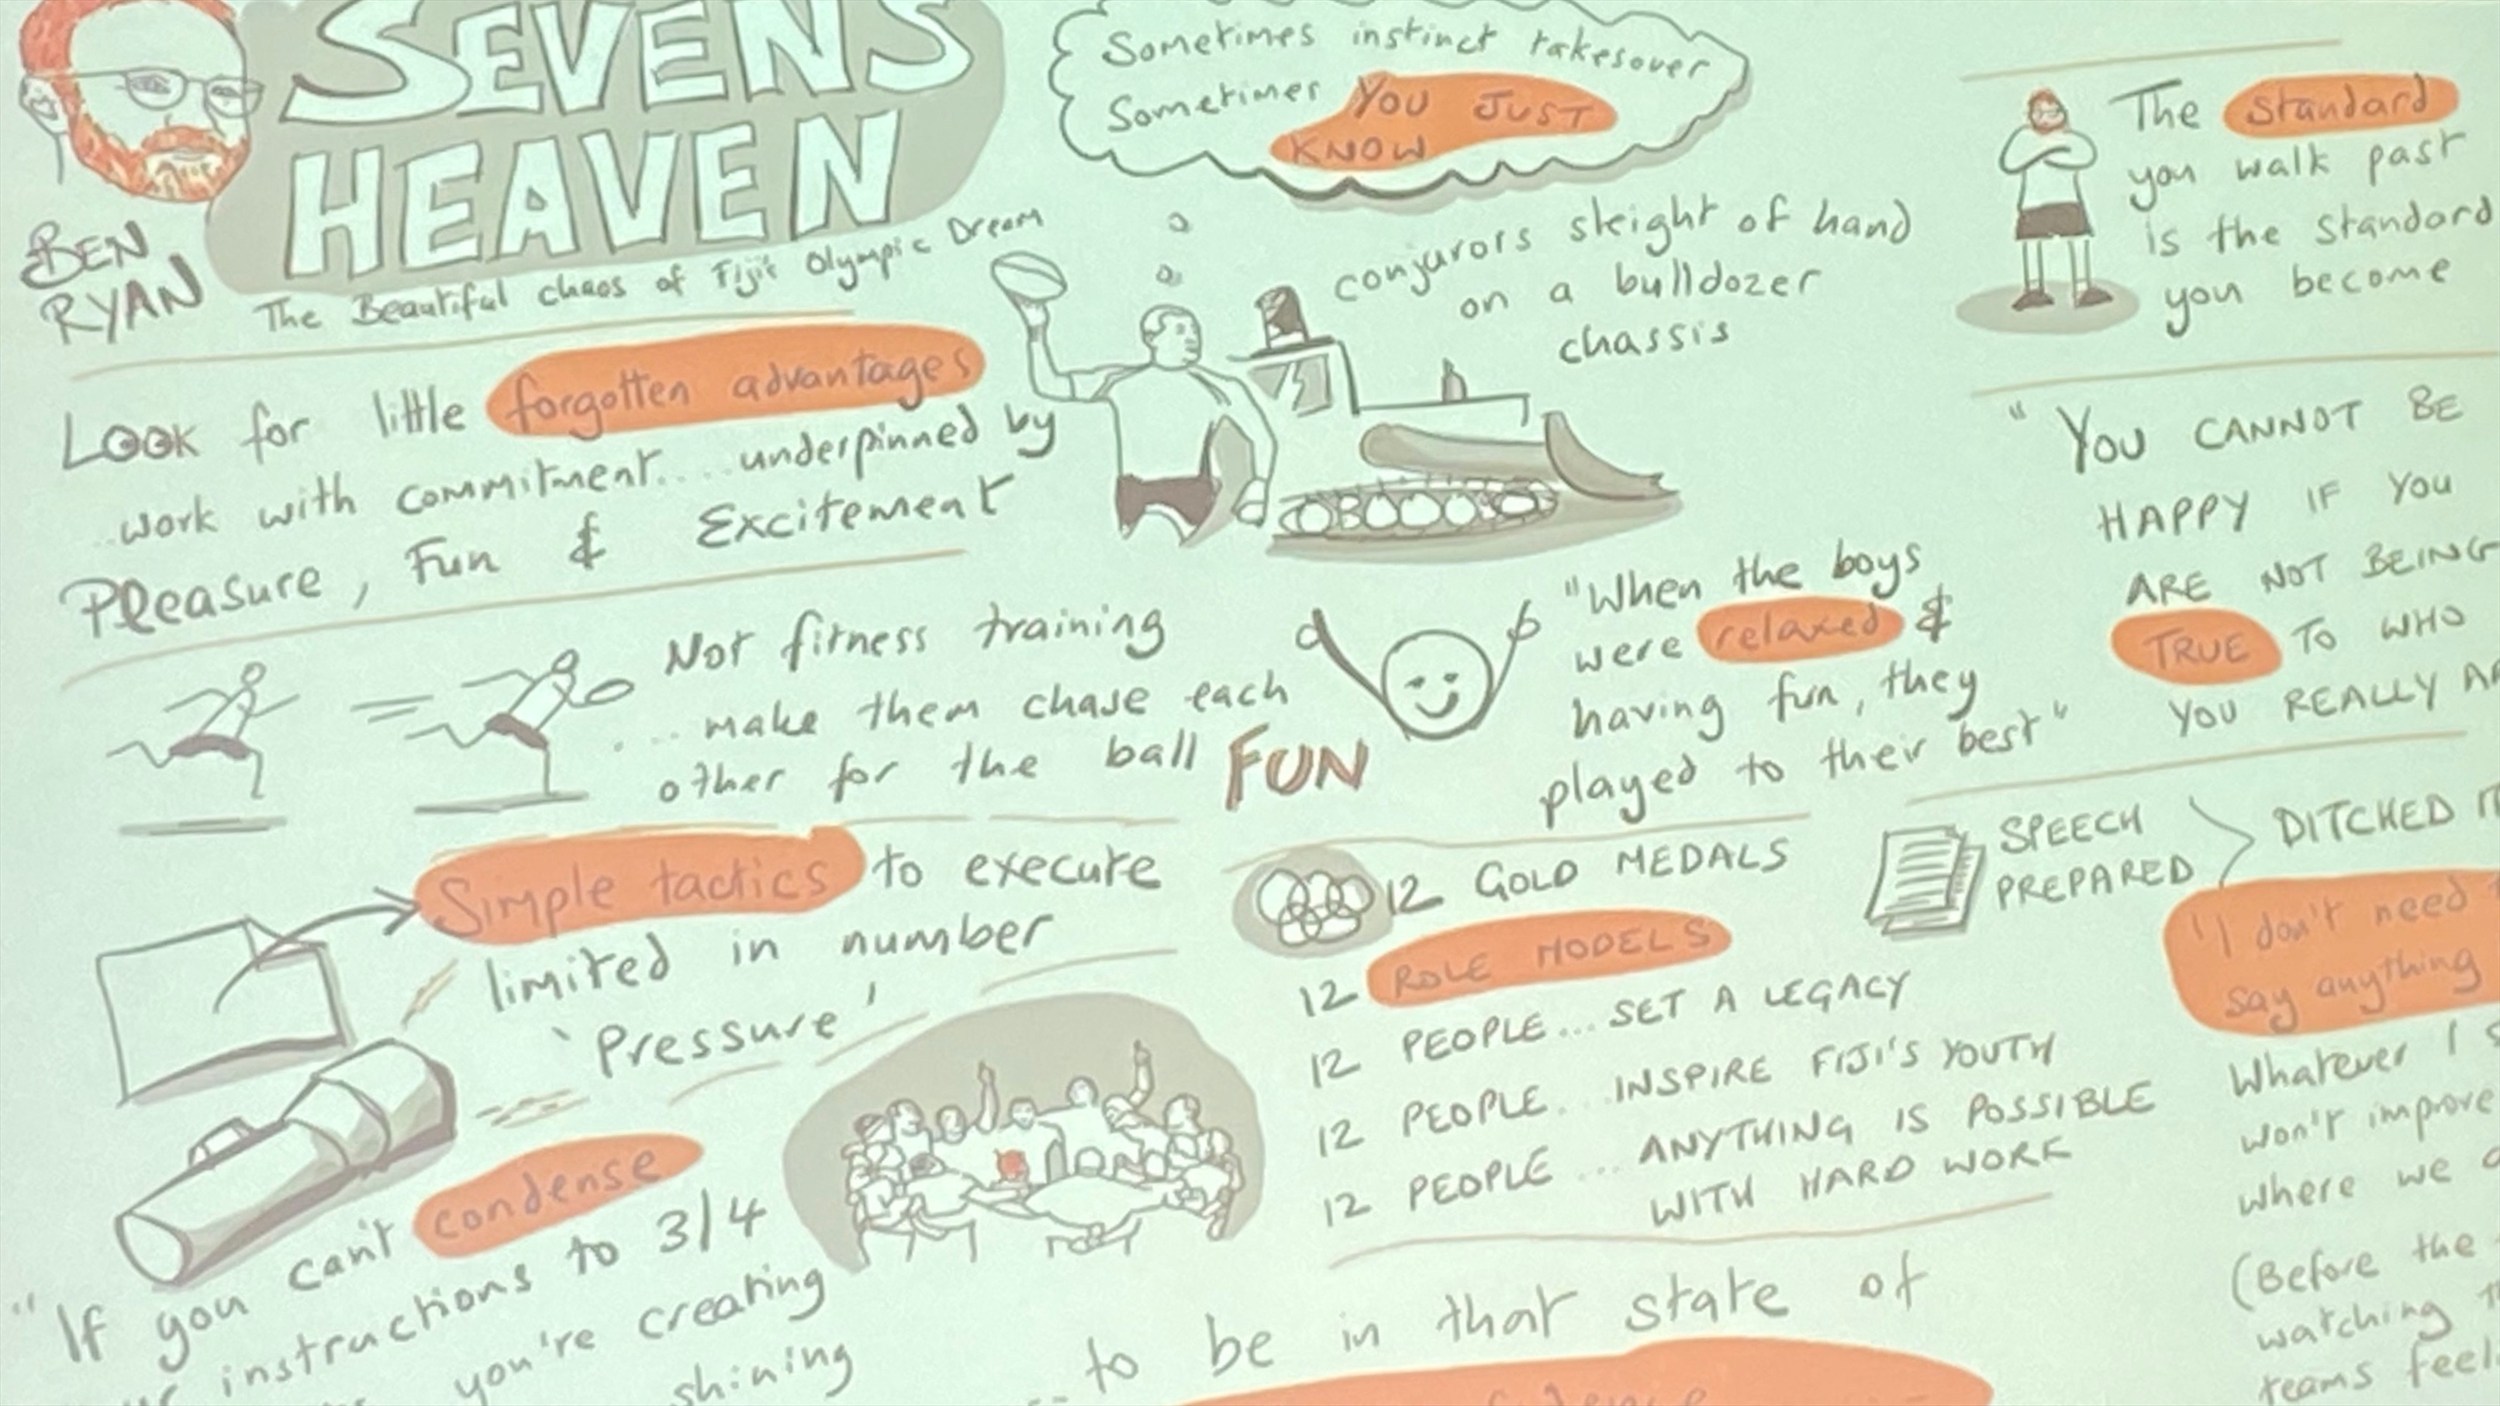 SEVENS
HEAVEN
BEN
RYAN
The Beautiful chaos of Fiji's Olympic Dream
Sometimes instinct takesover
Sometimes YOU JUST
KNOW
conjurors sleight of hand
on a bulldozer
chassis
The standard
you walk past
is the standard
you become
LOOK for little forgotten advantages
...work with commitment.... underpinned by
Pleasure, Fun & Excitement
Not fitness training
.... make them chase each
other for the ball FUN
"When the boys
were relaxed &
having fun, they
played to their best"
"YOU CANNOT BE
HAPPY IF YOU
ARE NOT BEING
TRUE TO WHO
YOU REALLY
Simple tactics to execute
limited in number
'Pressure'
12 GOLD MEDALS
12 ROLE MODELS
12 PEOPLE... SET A LEGACY
12 PEOPLE... INSPIRE FIJI'S YOUTH
12 PEOPLE... ANYTHING IS POSSIBLE
WITH HARD WORK
SPEECH
PREPARED
DITCHED
"I don't need
say anything
Whatever I
won't improve
where we
(Before the
watching
teams
"If you can't condense
instructions to 3/4
you're creating
shining
... to be in that state of